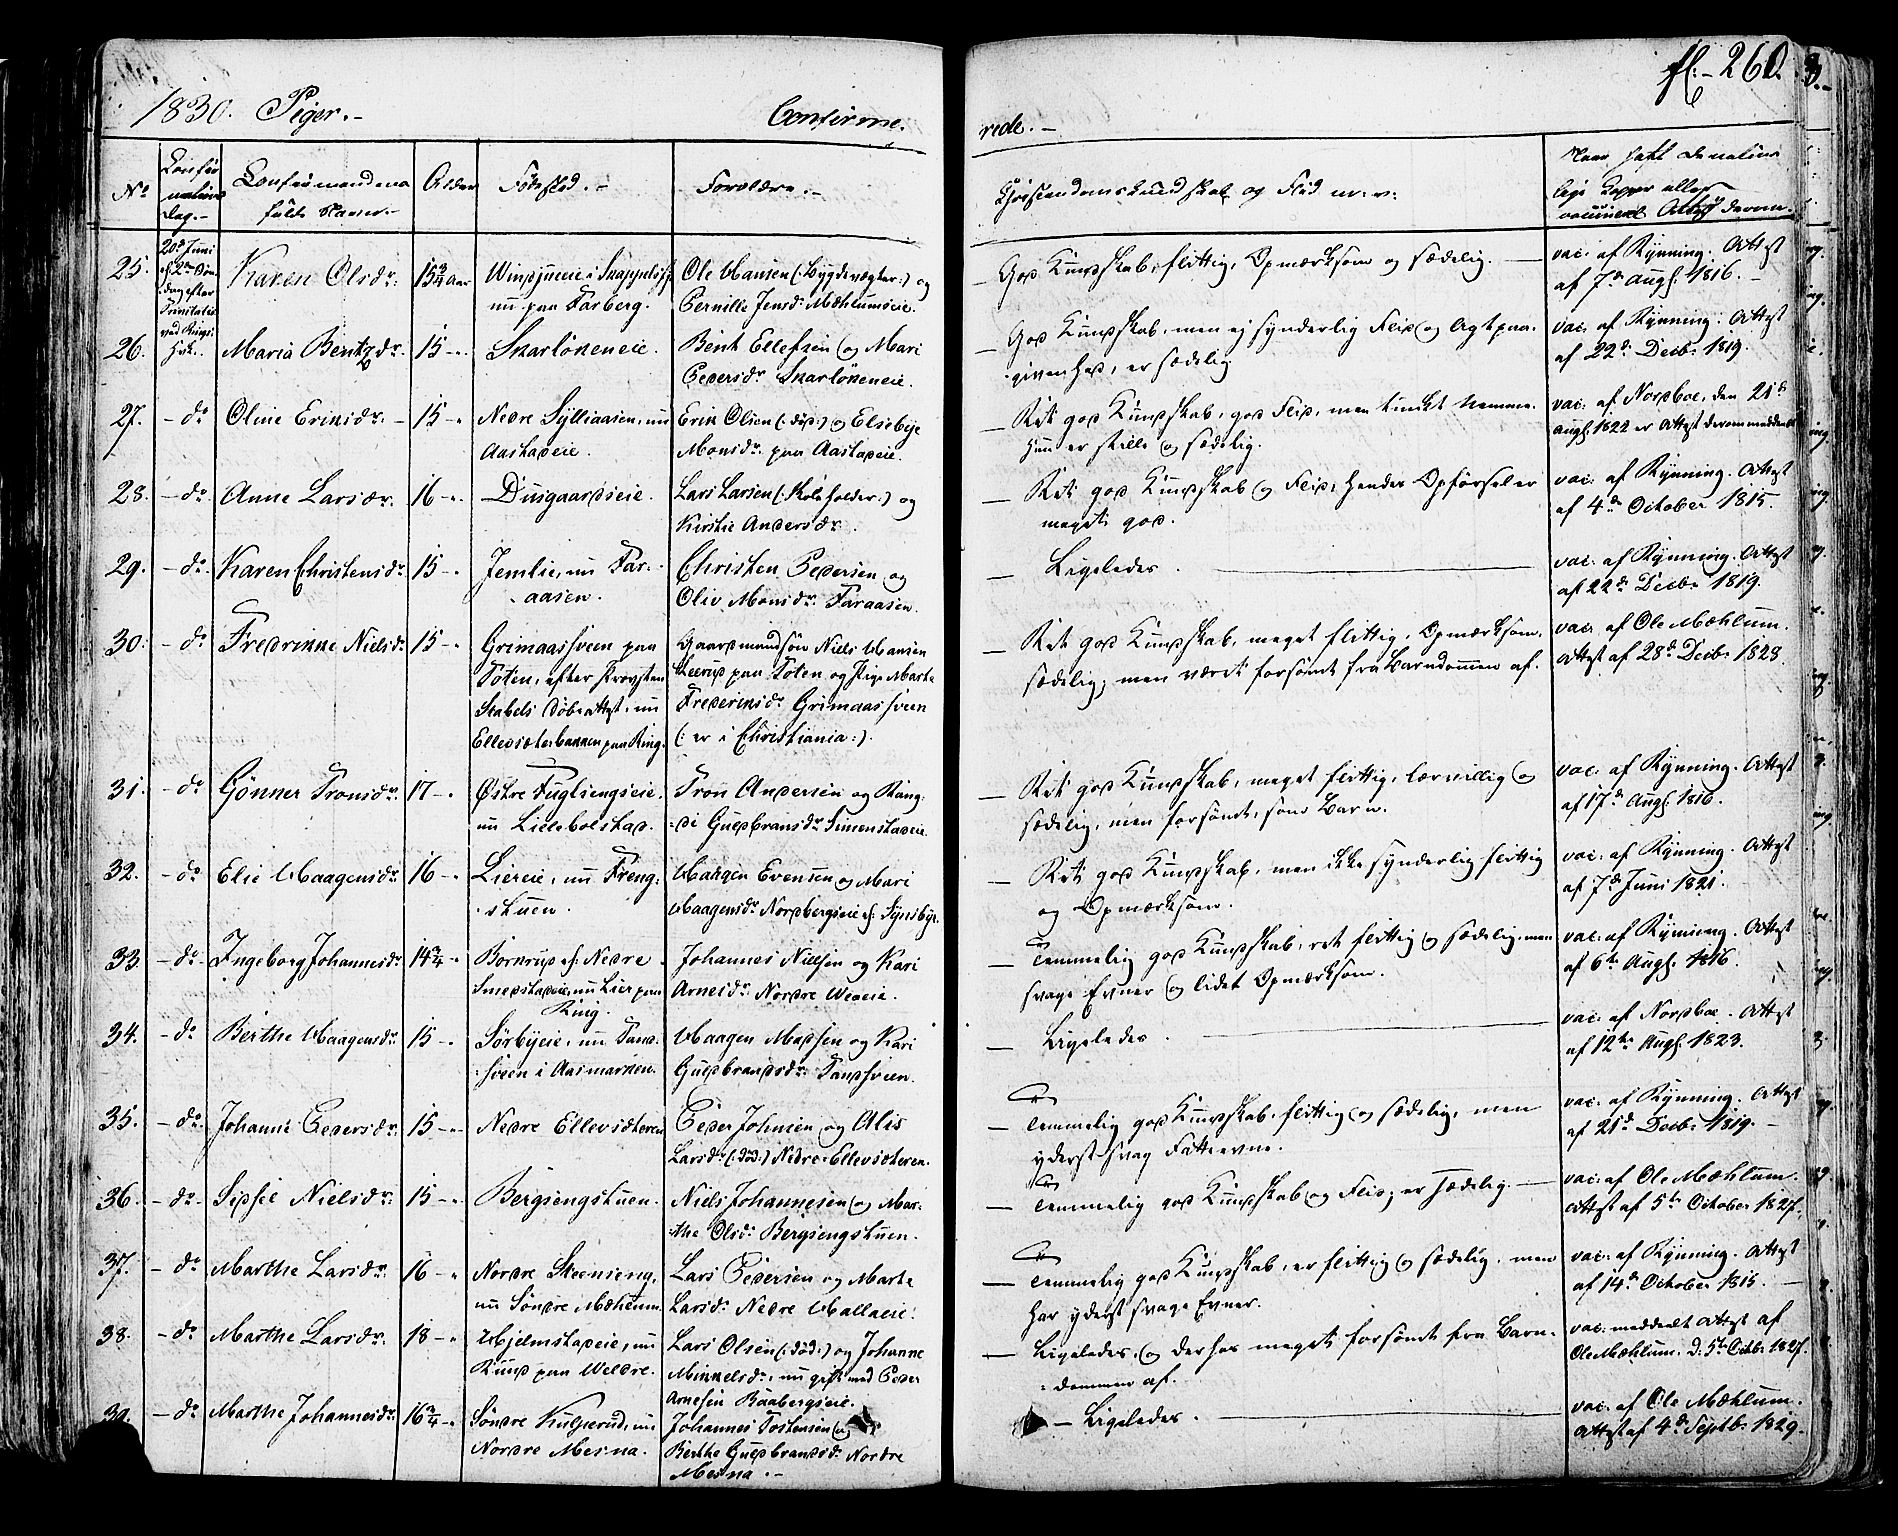 fl. 260.
1830. Piger. Confirme- rede.
No
Confirmations Dag.
Confirmandens fulde Navn.
Alder
Fødested.
Forældre.
Christendomskundskab og Flid m. v.
Naar havt de naturlige Kopper eller vaccineret Attest derom.
25. 20de Juni
Karen Olsdr. 15 3/4 Aar
nu paa Farberg.
Ole Hansen (: Bygdevægter :) og
Pernille Jensdr. Mæhlumseie.
God Kundskab, flittig, Opmærksom og sædelig.
vac. af Rynning. Attest
af 7de Augs. 1816.
26. Maria Bentzdr. 15
Skarlökeneie.
Bent Ellefsen og Mari
Pedersdr. Skarlökeneie.
God Kundskab, men ej synderlig Flid og Agtpaa-
givenhed, er sædelig
vac. af Rynning. Attest
af 22de Decbr. 1819.
27. do Oline Eriksdr. 15
Nedre Sylliaasen, nu
Aastadeie.
Erik Olsen (: død :) og Elsebye
Monsdr. paa Aastadeie.
Ret god Kundskab, god Flid, men tungt Nemme.
Hun er stille og sædelig.
vac. af Nordboe, den 21de
Augs. 1822 er Attest derom meddeelt
28. do Anne Larsdr. 16
Dusgaardseie.
Lars Larsen (: Skoleholder :) og
Kirstie Andersdr.
Ret god Kundskab og Flid, hendes Opførsel er
meget god.
vac. af Rynning. Attest
af 4de October 1815.
29. do Karen Christensdr. 15
Jemlie, nu Far-
aasen.
Christen Pedersen og
Oliv Monsdr. Faraasen.
Ligeledes.
vac. af Rynning. Attest
af 22de Decbr. 1819.
30. do Fredrikke Nielsdr. 15
Grimaassveen paa
Toten, efter Provsten
Stabels Døbeattest, nu
Ellevsæterbakken paa Ring.
Gaardmandsøn Niels Hansen
paa Toten og Pige Marte
Frederiksdr. Grimaassveen
(: er i Christiania :).
Ret god Kundskab, meget flittig, Opmærksom,
sædelig; men været forsömt fra Barndommen af.
vac. af Ole Mæhlum.
Attest af 28de Decbr. 1828.
31. do Gönner Tronsdr. 17
Østre Fuglsengseie,
nu Lillebolstad.
Tron Andersen og Rang-
di Gulbransdr. Simenstadeie.
Ret god Kundskab, meget flittig, lærvillig og
sædelig, men forsömt, som Barn.
vac. af Rynning. Attest
af 17de Augs. 1816.
32. do Elie Haagensdr. 16
Liereie, nu Freng-
stuen.
Haagen Evensen og Mari
Haagensdr. Nordbergseie
Ret god Kundskab, men ikke synderlig flittig
og Opmærksom.
vac. af Rynning. Attest
af 7de Juni 1821.
33. do Ingeborg Johannesdr. 14 3/4
Bornrud Nedre
Smedstadeie, nu Lier paa
Ring.
Johannes Nielsen og Kari
Arnesdr. Nordre Wedeie.
Temmelig god Kundskab, ret flittig og sædelig, men
svage Evner og lidet Opmærksom.
vac. af Rynning. Attest
af 6te Augs. 1816.
34. do Berthe Haagensdr. 15
Sörbyeie, nu Tand-
sveen i Aasmarken.
Haagen Madsen og Kari
Gulbransdr. Tandsveen.
Ligeledes.
vac. af Nordboe. Attest
af 12te Augs. 1823.
35. do Johanne Pedersdr. 15
Nedre Ellevsæteren
Peder Johnsen og Alis
Larsdr. (: død :) Nedre Ellevsæteren.
Temmelig god Kundskab, flittig og sædelig, men
yderst svag Fatteevne.
vac. af Rynning. Attest
af 21de Decbr. 1819.
36. do Sidsel Nielsdr. 15
Bergsengstuen.
Niels Johannesen og Mar-
the Olsdr. Bergsengstuen.
Temmelig god Kundskab og Flid; er sædelig.
vac. af Ole Mæhlum.
Attest af 5te October 1827.
37. do Marthe Larsdr. 16
Nordre Skeenseng,
nu Söndre Mæhlum.
Lars Pedersen og Marte
Larsdr. Nedre Hallaeie.
Temmelig god Kundskab, er flittig og sædelig, men
har yderst svage Evner.
vac. af Rynning. Attest
af 14de October 1815.
38. do Marthe Larsdr. 18
Hjelmstadeie, nu
Rund paa Weldre.
Lars Olsen (: død :) og Johanne
Mikkelsdr. nu gift med Peder
Arnesen Baabergseie.
Ligeledes, og derhos meget forsömt fra Barn-
dommen af.
vac. meddeelt Attest af
Ole Mæhlum. d. 5te Octbr. 1827.
39. do Marthe Johannesdr. 16 3/4
Söndre Kulsrud, nu
Nordre Mesna.
Johannes Tostensen og
Berthe Gulbransdr. Nordre
Mesna.
Ligeledes.
vac. af Ole Mæhlum.
Attest af 4de Septbr. 1829.